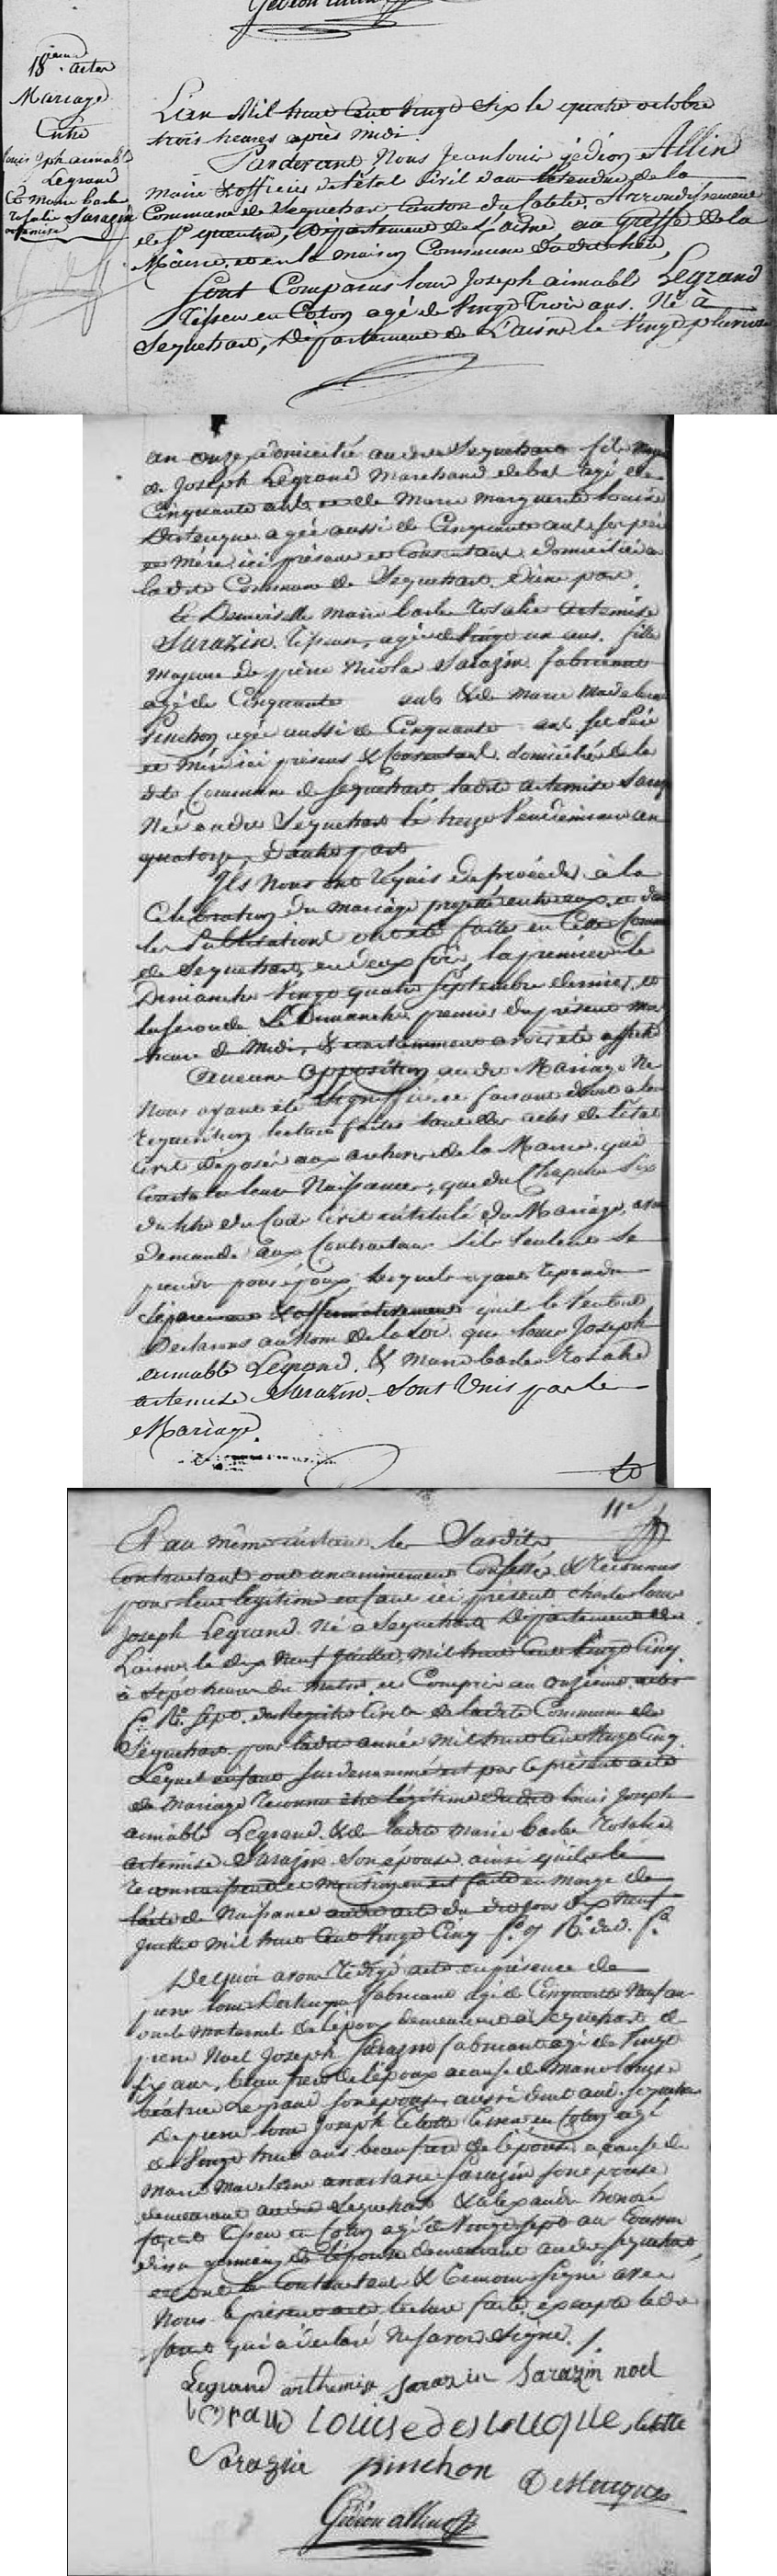 Gédéon allin
18ieme acte
Mariage
Entre
Louis Jph aimable
Legrand
Et Marie barbe
Rosalie Sarazin
artemise
L'an Mil huit Cent Vingt Six le quatre octobre
trois heures après midi
Pardevant Nous Jean louis gédéon Allin
Maire & officier de l'état Civil dans l'étendue de la
Commune de Sequehart Canton du Catelet, Arrondissement
de St quentin, Département de L'aisne, au Greffe de la
Mairie, et en la maison Commune du dit lieu,
Sont Comparus Louis Joseph aimable Legrand
Tisseur en Coton agé de Vingt Trois ans. Né à
Sequehart, Département de L'aisne le Vingt pluviose
an onze, domicilié audit Sequehart fils
de Joseph Legrand Marchand de bas agé de
Cinquante ans et de Marie Marguerite Louise
Destenque agée aussi de Cinquante ans ses père
et mère ici présens et Consentans domiciliés a
ladite Commune de Sequehart. d'une part.
Et Demoiselle marie barbe Rosalie artemise
Sarazin. Tisseuse, agée de Vingt un ans. fille
majeure de pierre Nicolas Sarazin fabricant
agé de Cinquante ans & de marie Madeleine
Pinchon agée aussi de Cinquante ans ses Père
et Mère ici présens & Consentans. domiciliés de la
dite Commune de Sequehart ladite artemise Saraz
Née audit Sequehart le treize Vendémiaire an
quatorze, d'autre part
Ils Nous ont requis de procéder à la
Célébration du mariage projetté entre eux, et dont
les Publications ont été faites en Cette Comm
de Sequehart, en deux fois, la première le
Dimanche Vingt quatre Septembre dernier, et
la seconde Le Dimanche premier du présent mois
heure de Midi, & avoir été affiché
Aucune Opposition audit Mariage Ne
Nous ayant été Signiffiée, faisant droit a leur
requisition lecture faites tant des actes de l'état
Civil déposés aux archives de la Mairie qui
Constate leur Naissance, que du Chapitre Six
du titre du Code Civil intitulé du Mariage, avons
demandé aux Contractans S'ils Veulent Se
prendre pour époux lesquels ayant répondu
séparément & affirmativement qu'il le Veulent
Déclarons au Nom de la Loi que Louis Joseph
aimable Legrand. & Marie barbe Rosalie
artemise Sarazin. Sont Unis par le
Mariage.
Et
11e
Et au même instant les Susdits
Contractants ont unanimement Confessé & Reconnus
pour leur legitime enfant ici présent charles louis
Joseph Legrand. Né a Sequehart Département de
Laisne le dix Neuf Juillet, mil huit Cent Vingt Cinq
à Sept heures du Matin. et Compris au onzième acte
fo. Ro. Sept. du Registre Civil de ladite Commune de
Sequehart pour ladite année mil huit Cent Vingt Cinq.
Lequel enfant Surdenommé est par le présent acte
de Mariage reconnu être légitime dudit Louis Joseph
aimable Legrand. & de ladite marie barbe Rosalie
artemise Sarazin. Son épouse ainsi qu'ils le
reconnaissent et mention en est faite en marge de
l'acte de Naissance audit acte du dit jour dix Neuf
Juillet mil huit Cent Vingt Cinq
De quoi avons rédigé acte en présence de
pierre louis Destenque fabricant agé de Cinquante Neuf ans
oncle Maternel de l'époux demeurant à Sequehart de
pierre Noel Joseph Sarazin fabricant agé de Vingt
Six ans, beau frère de l'époux a cause de Marie louise
béatrice Legrand son épouse, aussi audit Sequehart
De pierre louis Joseph Lebotte tisseur en Coton agé
de Vingt huit ans beau frère de l'épouse a cause de
Marie Madeleine anastasie Sarazin son épouse
demeurant audit Sequehart & alexandre honoré
tisseur en Coton agé de Vingt Sept ans Cousin
issu germain de l'épouse demeurant audit Sequehart,
et ont les Contractans & témoins Signé avec
Nous le présent acte lecture faite excepté ledit
qui a déclaré Ne savoir Signer.
Legrand arthemise Sarazin Sarazin noel
Legrand Louise destenque lebotte
Sarazin pinchon Destenques
Gédéon allin